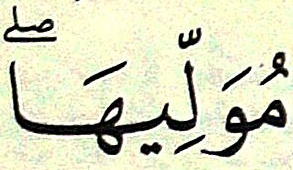 مُوَلِّيهَاۖ